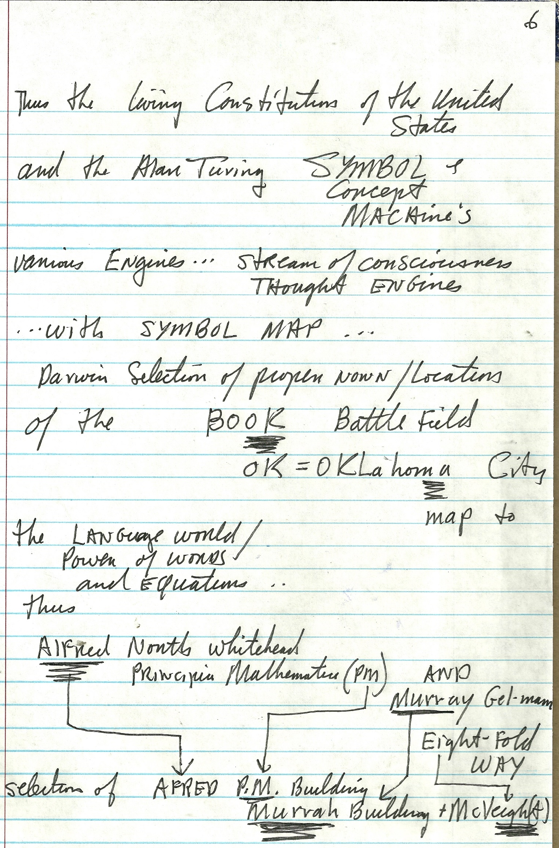 6
Thus the living Constitution of the United
States
and the Alan Turing SYMBOL &
Concept
MACHine's
various Engines... stream of consciousness
THought ENGINES
...with SYMBOL MAP ...
Darwin Selection of proper NOWN/Locations
of the BOOK Battle Field
OK = OKLahoma City
map to
the LANGuage world/
Power of words
and EQuations ..
thus
Alfred North whitehead
PRINCIPIA Mathematica (PM) AND
Murray Gel-mann
Eight-Fold
WAY
selection of AFRED P.M. Building
Murrah Building + McVeigh(t)